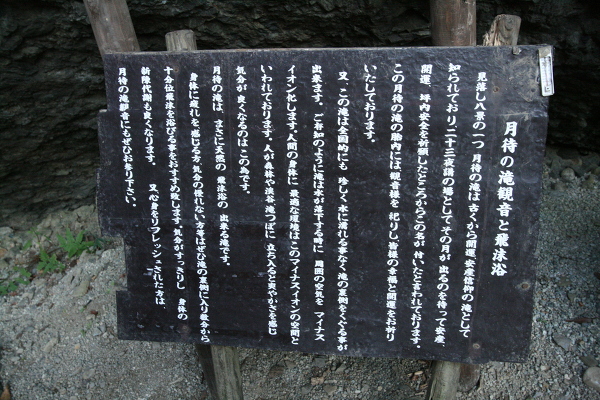 月待の滝観音と龍沫浴
見落し八景の一つ 月待の滝は古くから開運 安産信仰の滝として
知られており、二十三夜講の場として その月が 出るのを待って安産、
開運、坪内安全を祈願したところから この名が 付いたと言われております。
この月待の滝の胎内には観音様を 祀りし 皆様の幸福と開運をお祈り
いたしております。
又、この滝は全国的にも 珍しく 水に濡れる事なく滝の裏側をくぐる事が
出来ます。ご存知のように滝は水が落下する時に 周囲の空気を マイナス
イオン化します。人間の身体に 最適な環境は このマイナスイオンの空間と
いわれております。人が森林や渓谷 滝つぼに 立ち入ると爽やかさを感じ
気分が 良くなるのは この為です。
月待の滝は まさに天然の 龍沫浴の 出来る滝です。
身体に疲れを感じる方、気分の優れない方等はぜひ滝の裏側に入り数分から
十分位飛沫を浴びる事をおすすめ致します。気分がすっきりし 身体の
新陳代謝も良くなります。 又 心身をリフレッシュされた方は、
月待の滝観音にもぜひお参り下さい。